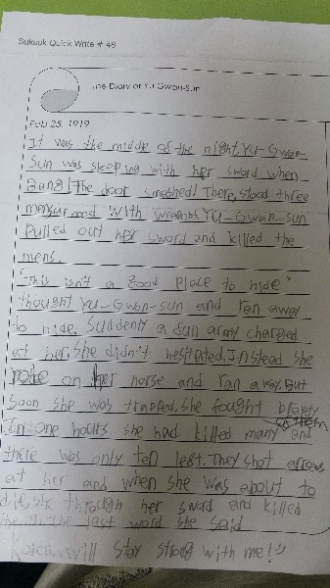 Suksuk Quick Write # 48
The Diary of Yu Gwan-Sun
Feb 25, 1919
It was the middle of the night, Yu-Gwan-
Sun was sleeping with her sword when
Bang! The door smashed! There, stood three
mens with weapons. Yu-Gwan-sun
Pulled out her sword and killed the
mens.
"This isn't a good place to hide"
thought Yu-Gwan-sun and ran away
to hide. Suddenly a full army charged
at her. She didn't hesitated. Instead she
on her horse and ran away. But
soon she was trapped. She fought bravely
In one hours she had killed many of them and
there was only ten left. They shot arrows
at her and when she was about to
die, she through her sword and killed
the last word she said
Korean will stay strong with me!!